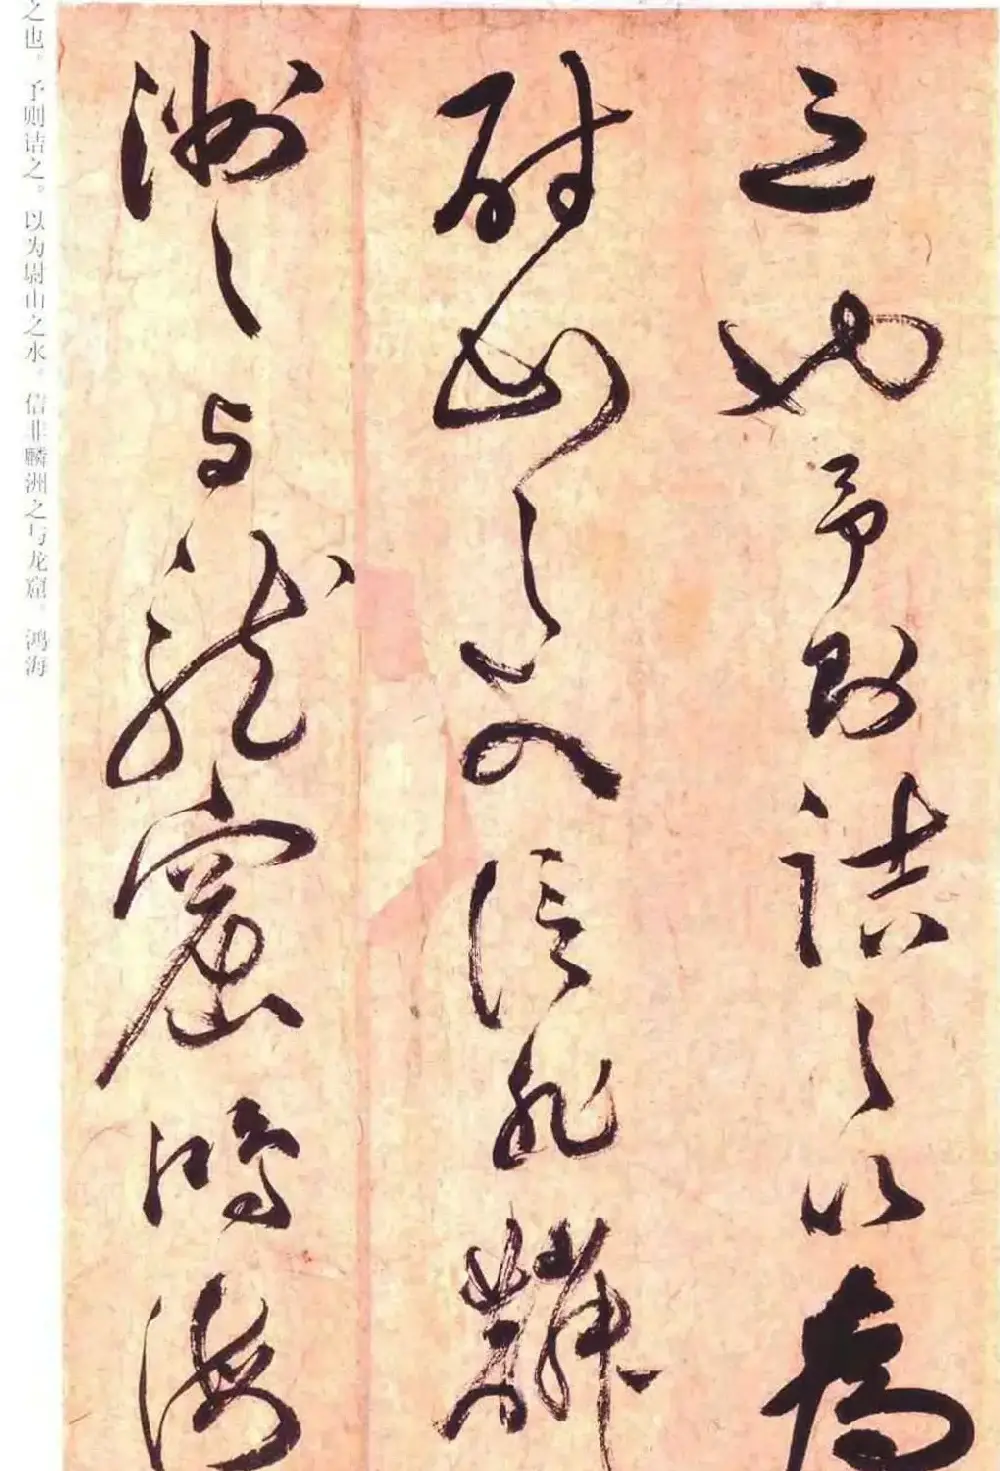 之也予则诘之以为
尉山之水信非麟
洲之与龙窟鸿海
之也。予则诘之。以为尉山之水。信非麟洲之与龙窟。鸿海